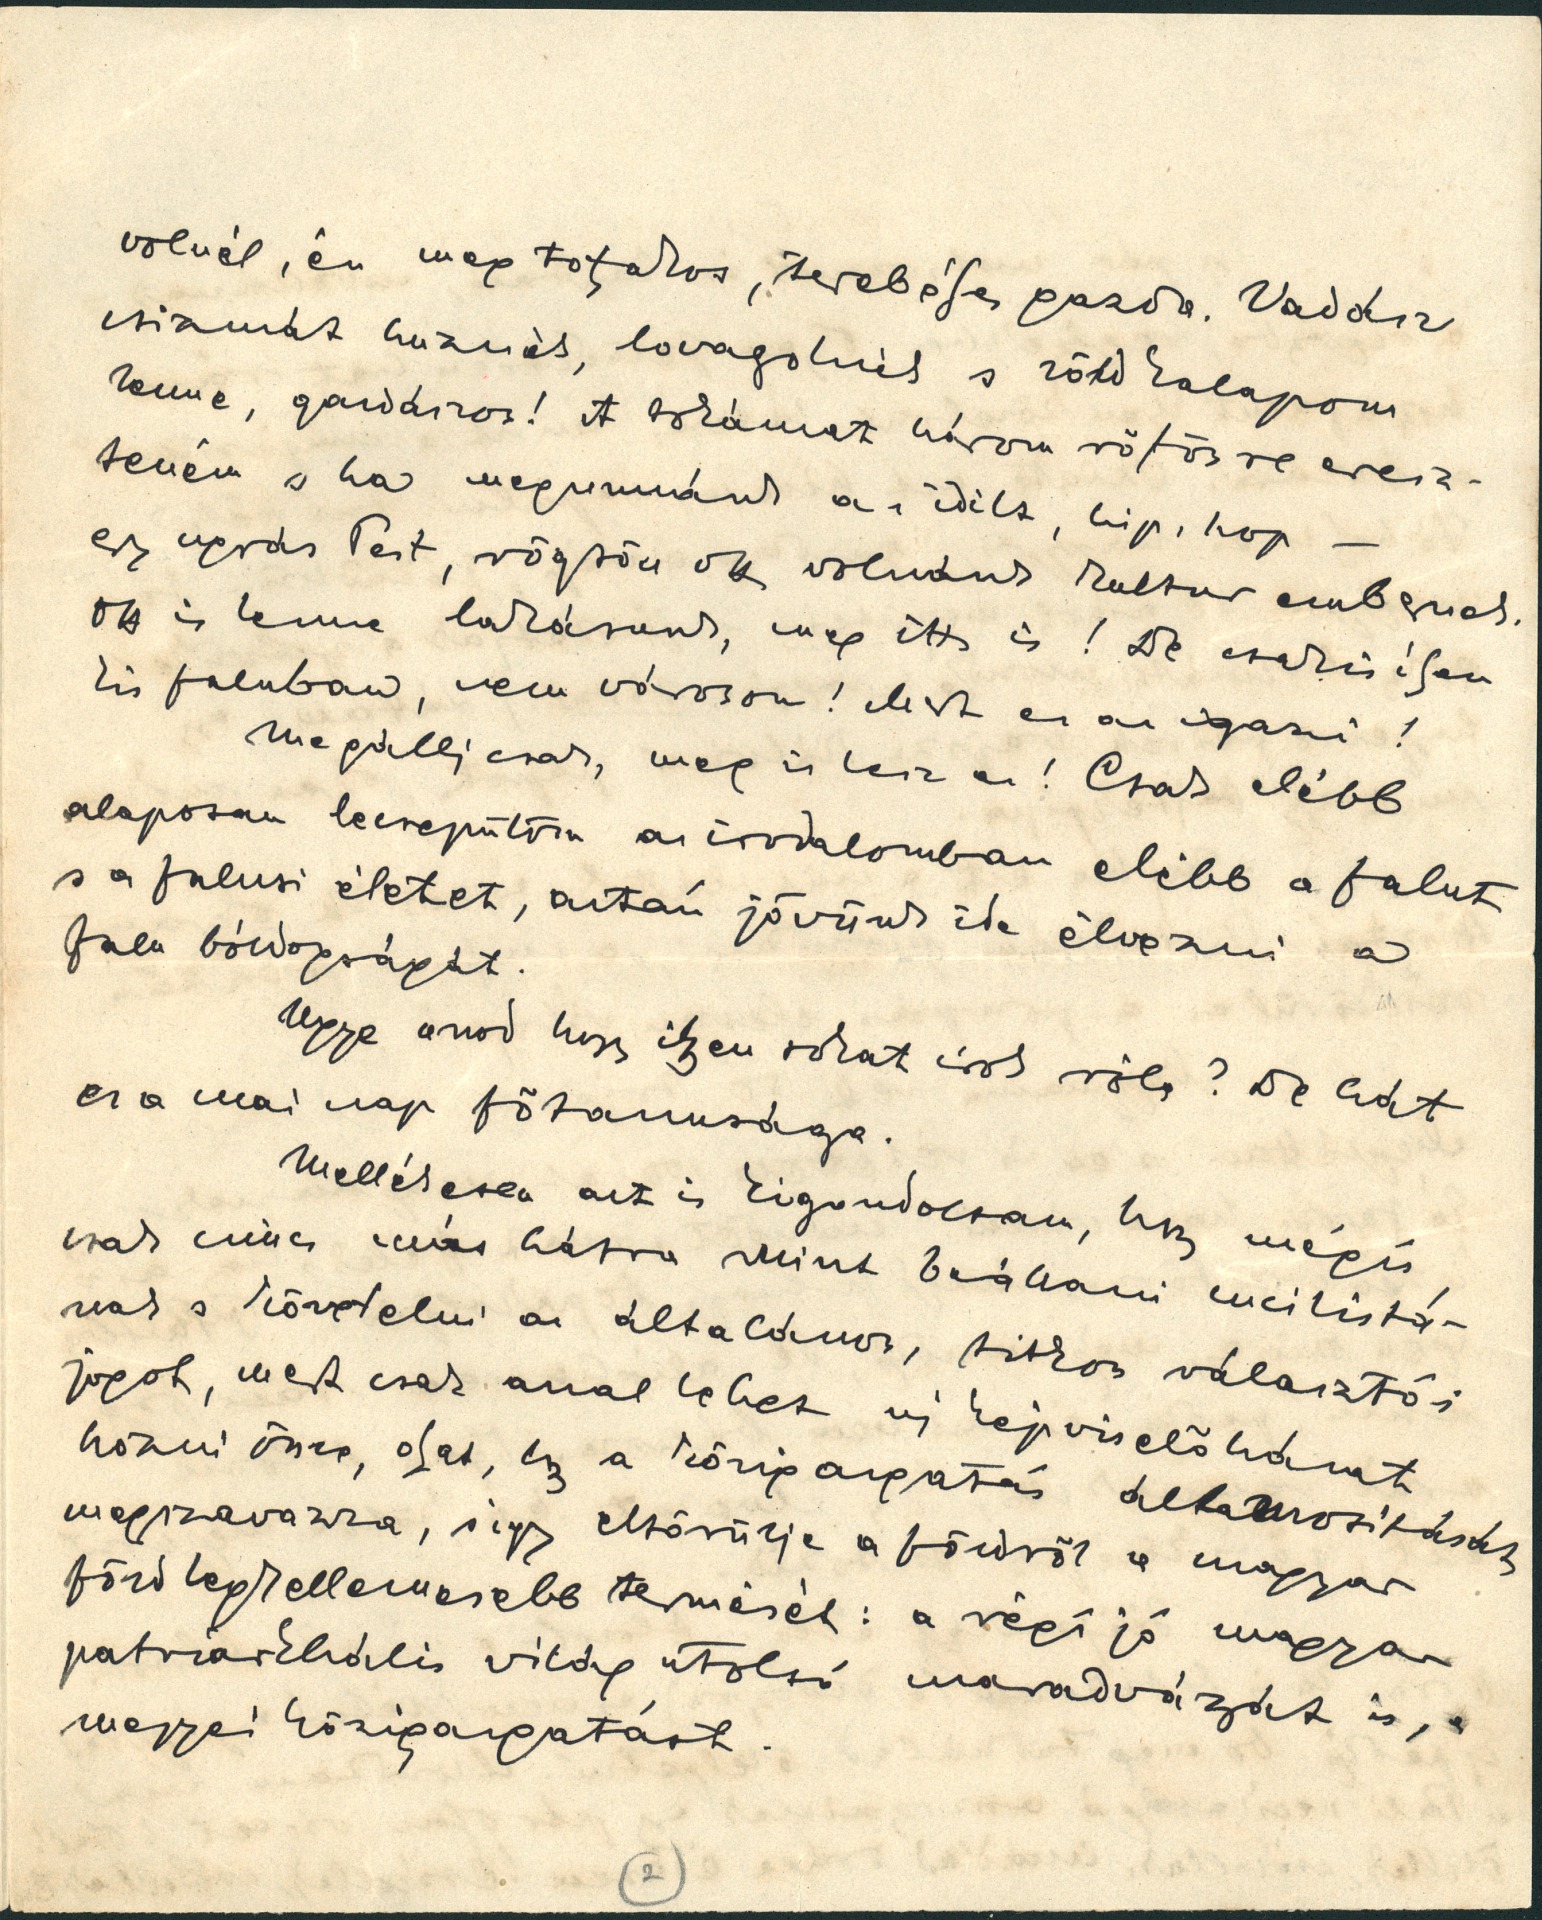 volnál, én meg tojzakos, terebélyes gazda. Vadász
csizmát huznék, lovagolnék s zöld kalapom
lenne, gardázos! A tokámat három röfösre eresz-
teném s ha megunnánk az idilt, hip, hop —
egy ugrás Pest, rögtön ott volnánk kultur embernek.
Ott is lenne lakásunk, meg itt is! De csakis ilyen
kis faluban, nem városon! Mert ez az igazi!
Megállj csak, meg is lesz ez! Csak elébb
alaposan lecsepülöm az irodalomban elébb a falut
s a falusi életet, aztán jövünk ide élvezni a
falu bóldogságát.
Ugye unod hogy ilyen sokat irok róla? De hát
ez a mai nap főtanusága.
Mellékesen azt is kigondoltam, hogy mégis
csak nincs más hátra mint beállani mcilistá-
nak s követelni az általános, titkos választói
jogot, mert csak azzal lehet uj képviselőházat
hozni össze, olyat, hogy a közigazgatás államositását
megszavazza, s igy eltörülje a földről a magyar
föld legjellemesebb termését: a régi jó magyar
patriarkhális világ utolsó maradványát is, a
megyei közigazgatást.
2